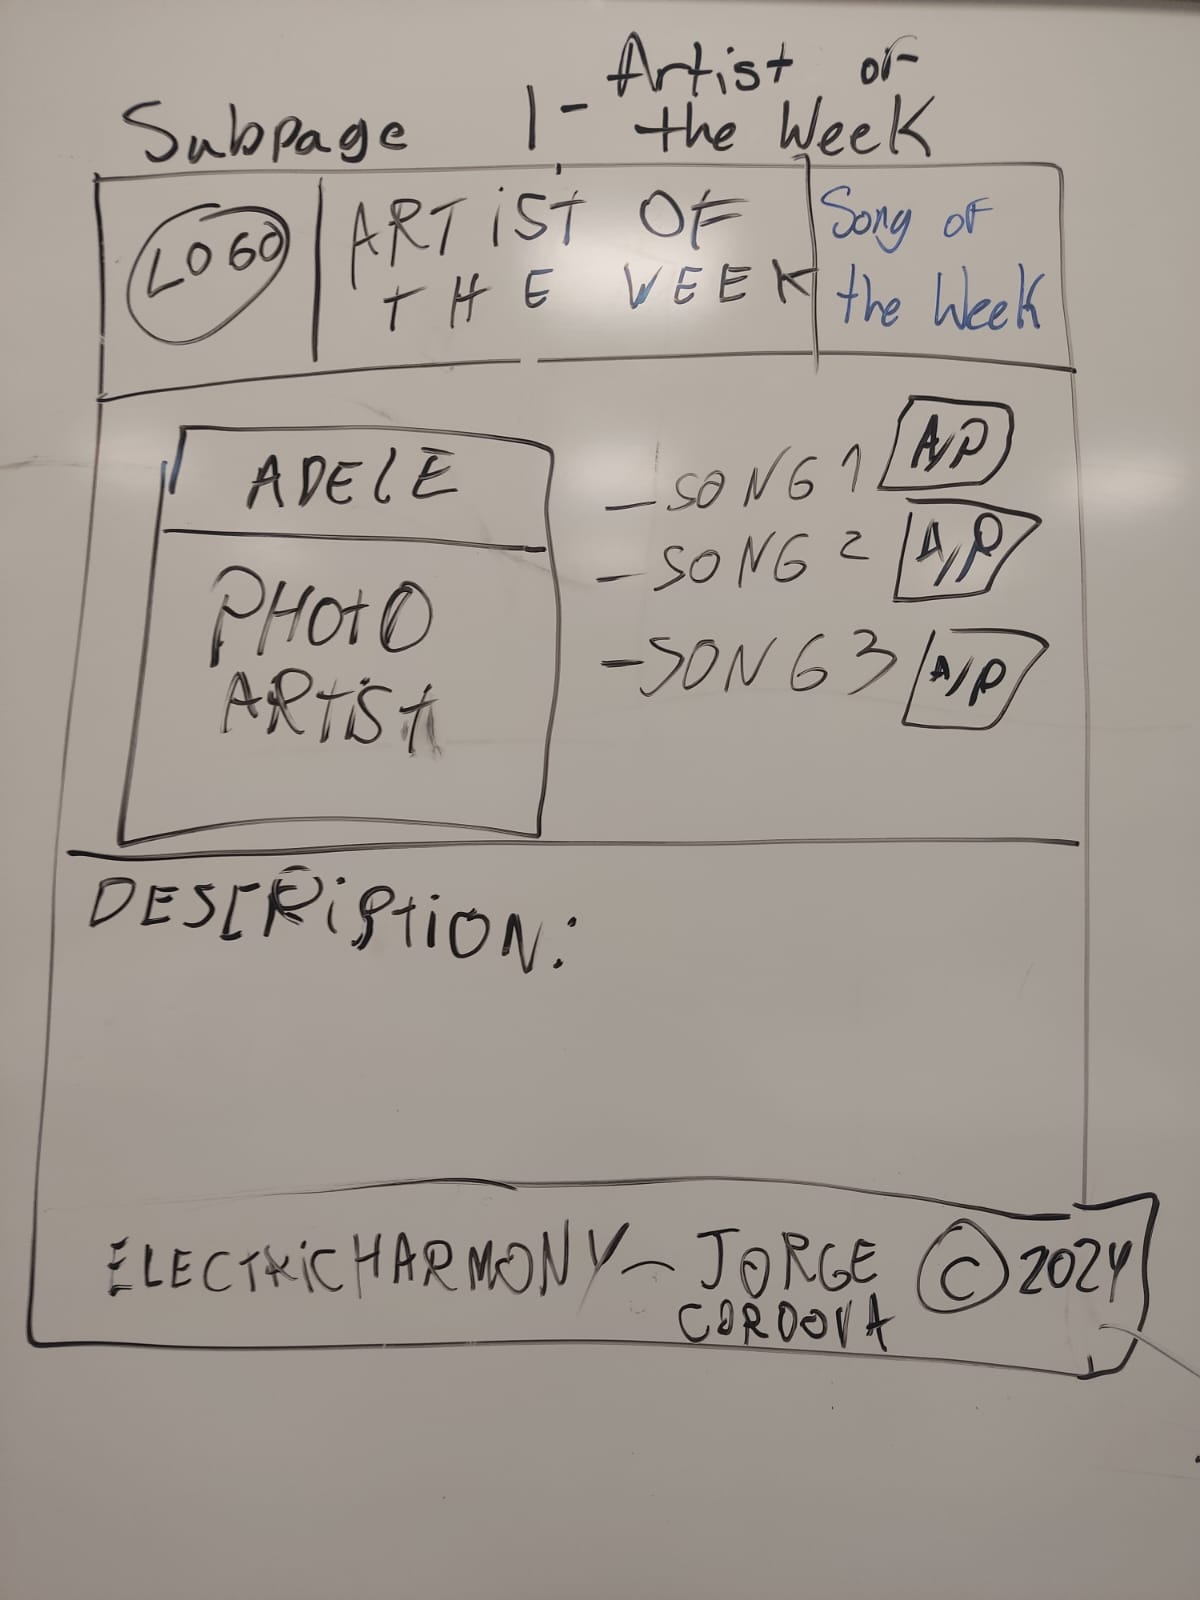 Subpage 1 - Artist of
the Week
LOGO
ARTiST OF
THE WEEK
Song of
the Week
ADELE
PHOtO
ARtiSt
- SONG 1 A/P
- SONG 2 A/P
- SONG 3 A/P
DESCRiPtiON:
ELECtRiCHARMONY - JORGE
CORDOVA
© 2024